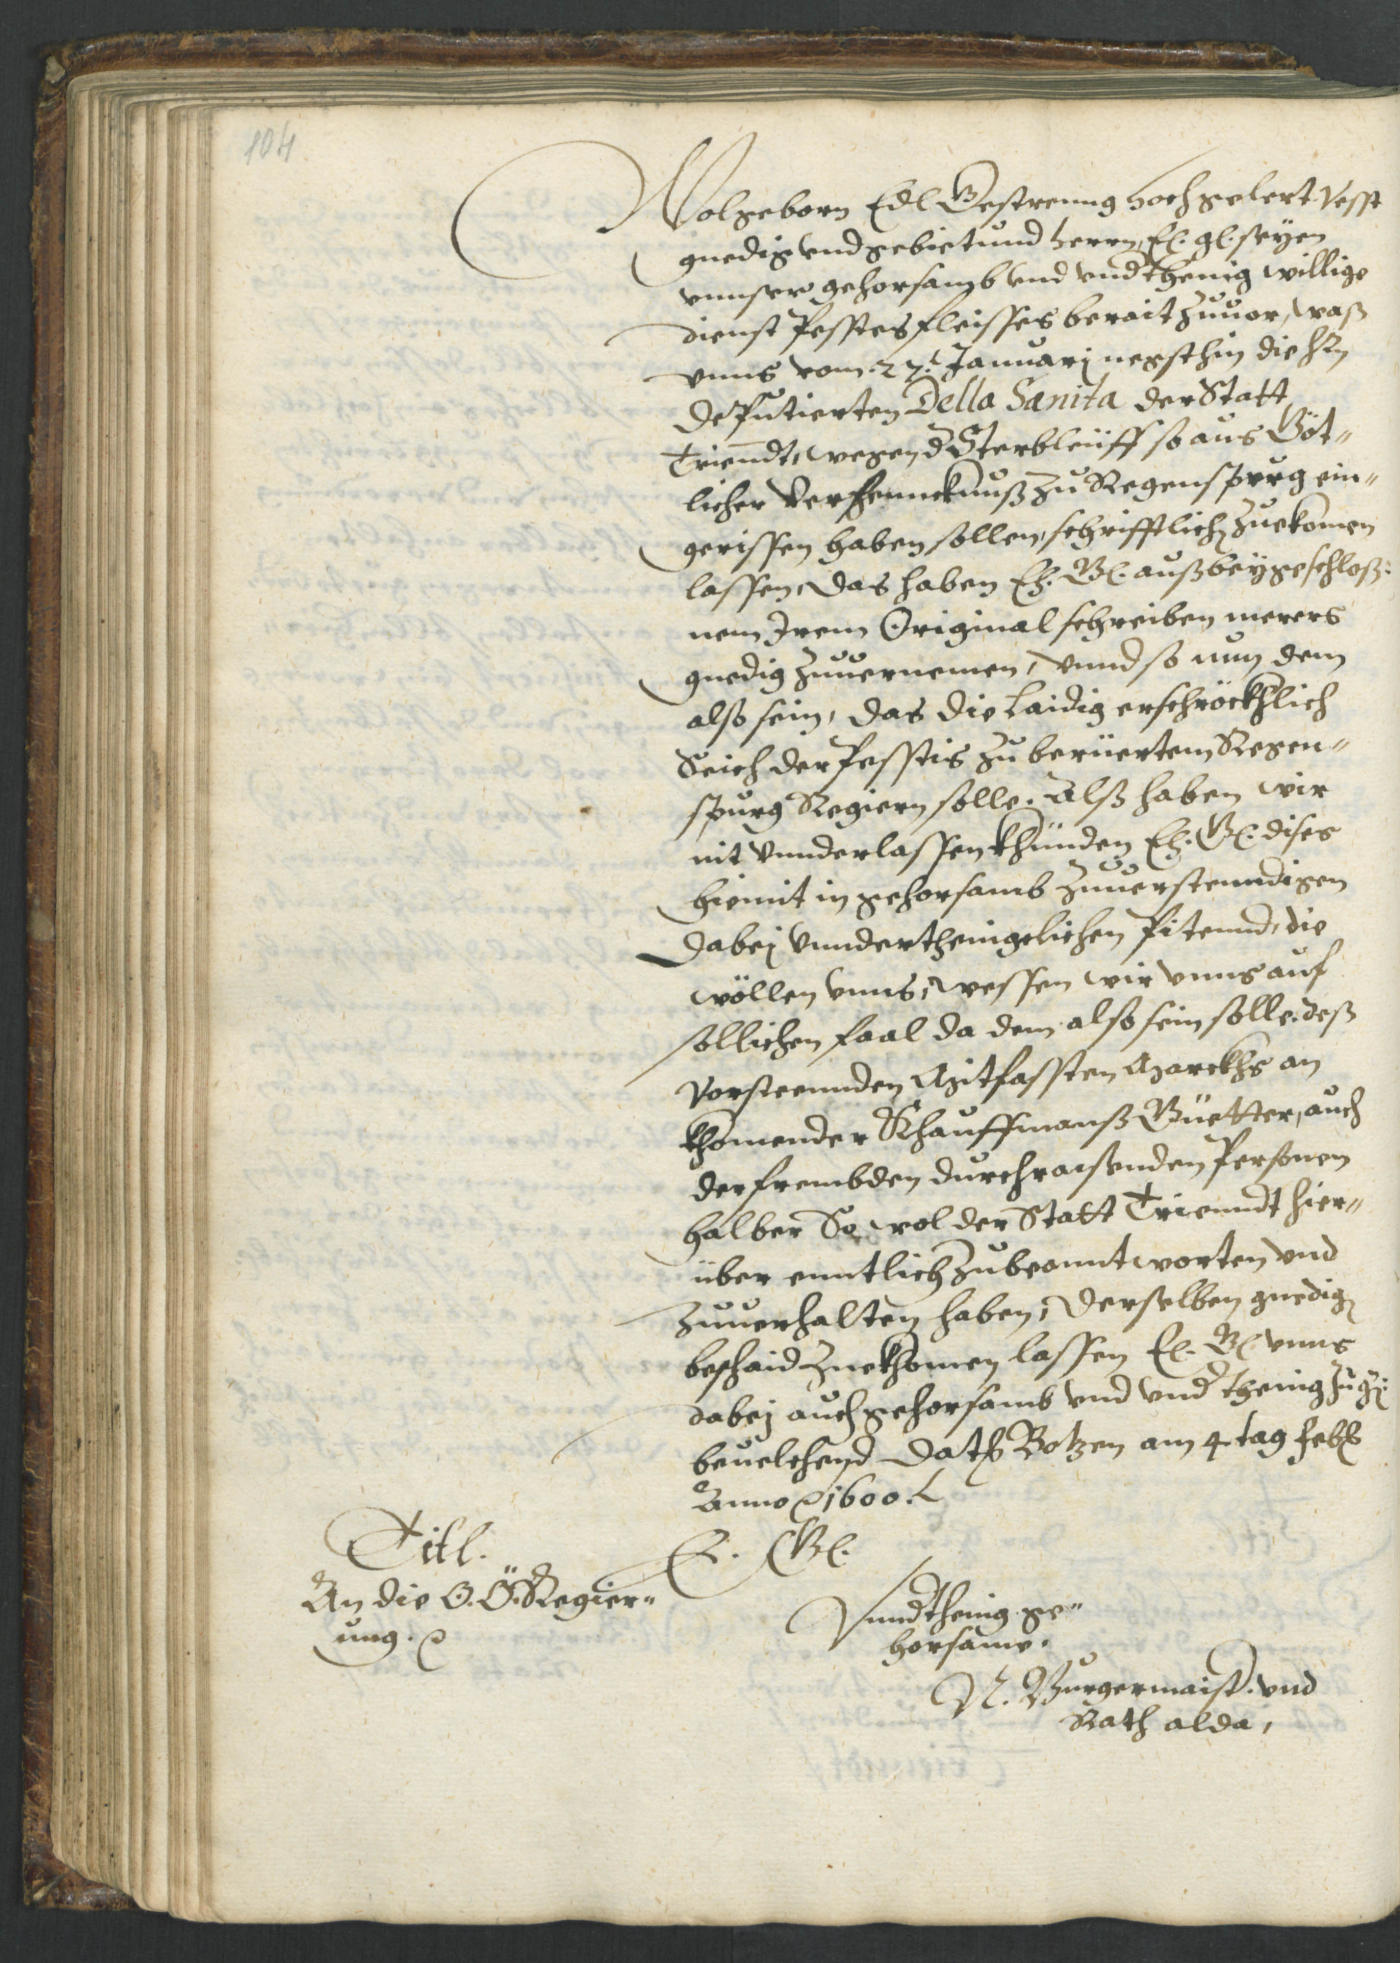 104
Wolgeborn Edl Gestrenng hochgelert Vesst
gnedig vnd gebietund herrn, E. gl. seyen
vnnser gehorsamb vnd vnd thenig willige
dienst Pesstes fleisses berait zuuor, waß
vnns vom 27. Januarj negsthin die hn
dePutierten Della Sanita der Statt
Trienndt, wegen d Sterbleüff so aus Göt„
licher Verhenncknuß zu Regenspurg ein„
gerissen haben sollen, schrifftlich zuekomen
lassen, das haben E. Gl. auß beygeschloß:
nem Jrem Original schreiben merers
gnedig zuuernemen, vnnd so nun dem
also sein, das die Laidig erschröckhlich
Seich der Pesstis zu berüertem Regen„
spurg Regiern solle. Alß haben wir
nit vnnderlassen khünden E. Gl. dises
hiemit in gehorsamb zuuerstenndigen
dabej vnnderthenigelichen Pitennd, die
wöllen vnns, wessen wir vnns auf
sollichen faal da dem also sein solle. deß
vorsteennden Mitfassten Marckhs an
khomender Khauffmanß Güetter, auch
der frembden durchraisenden Personen
halber So wol der Statt Trienndt hier„
über enntlich zubeanntworten vnd
zuuerhalten haben, derselben gnedig
beschaid zuekhomen lassen E. Gl. vnns
dabej auch gehorsamb vnd vnd thenig zu
beuelchend Dat Botzen am 4. tag feb
Anno 1600.
E. Gl.
Vnndthenig ge„
horsame.
N. Burgermaist. vnd
Rath alda,
Titl.
An die O. Ö. Regier„
ung.